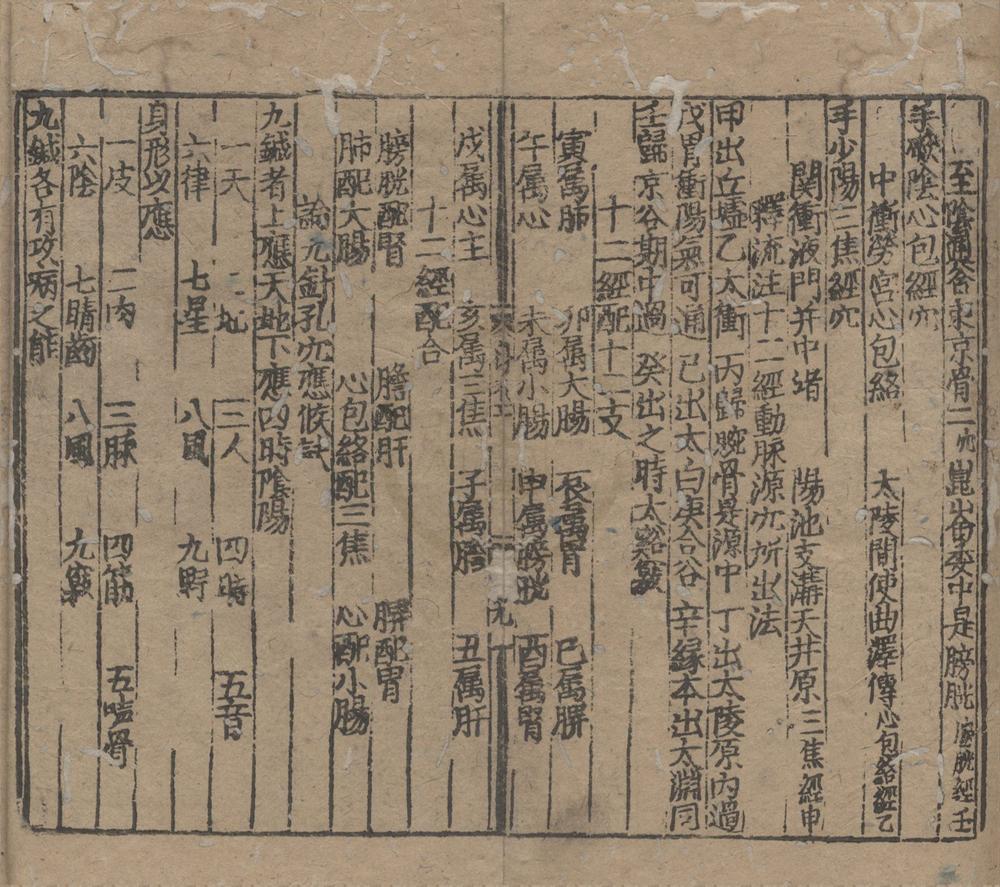 至陰通谷束京骨二穴崑崙委中是膀胱 膀胱經壬
手厥陰心包經穴
中衝勞宮心包絡 大陵間使曲澤傳心包絡經乙
手少陽三焦經穴
関衝液門并中渚 陽池支溝天井原三焦經申
釋流注十二經動脉源穴所出法
甲出丘墟乙太衝 丙歸腕骨是源中 丁出太陵原內過
戊胃衝陽氣可通 己出太白庚合谷 辛緣本出太淵同
壬歸京谷期中過 癸出之時太谿
十二經配十二支
寅属肺 卯属大腸 辰属胃 巳属脾
午属心 未属小腸 申属膀胱 酉属腎
戌属心主 亥属三焦 子属胆 丑属肝
十二經配合
膀胱配腎 膽配肝 脾配胃
肺配大腸 心包絡配三焦 心配小腸
論九針孔穴應候訣
九鍼者上應天地下應四時陰陽
一天 二地 三人 四時 五音
六律 七星 八風 九野
身形以應
一皮 二肉 三脉 四筋 五 骨
六陰 七睛齒 八風 九竅
九鍼各有攻病之能